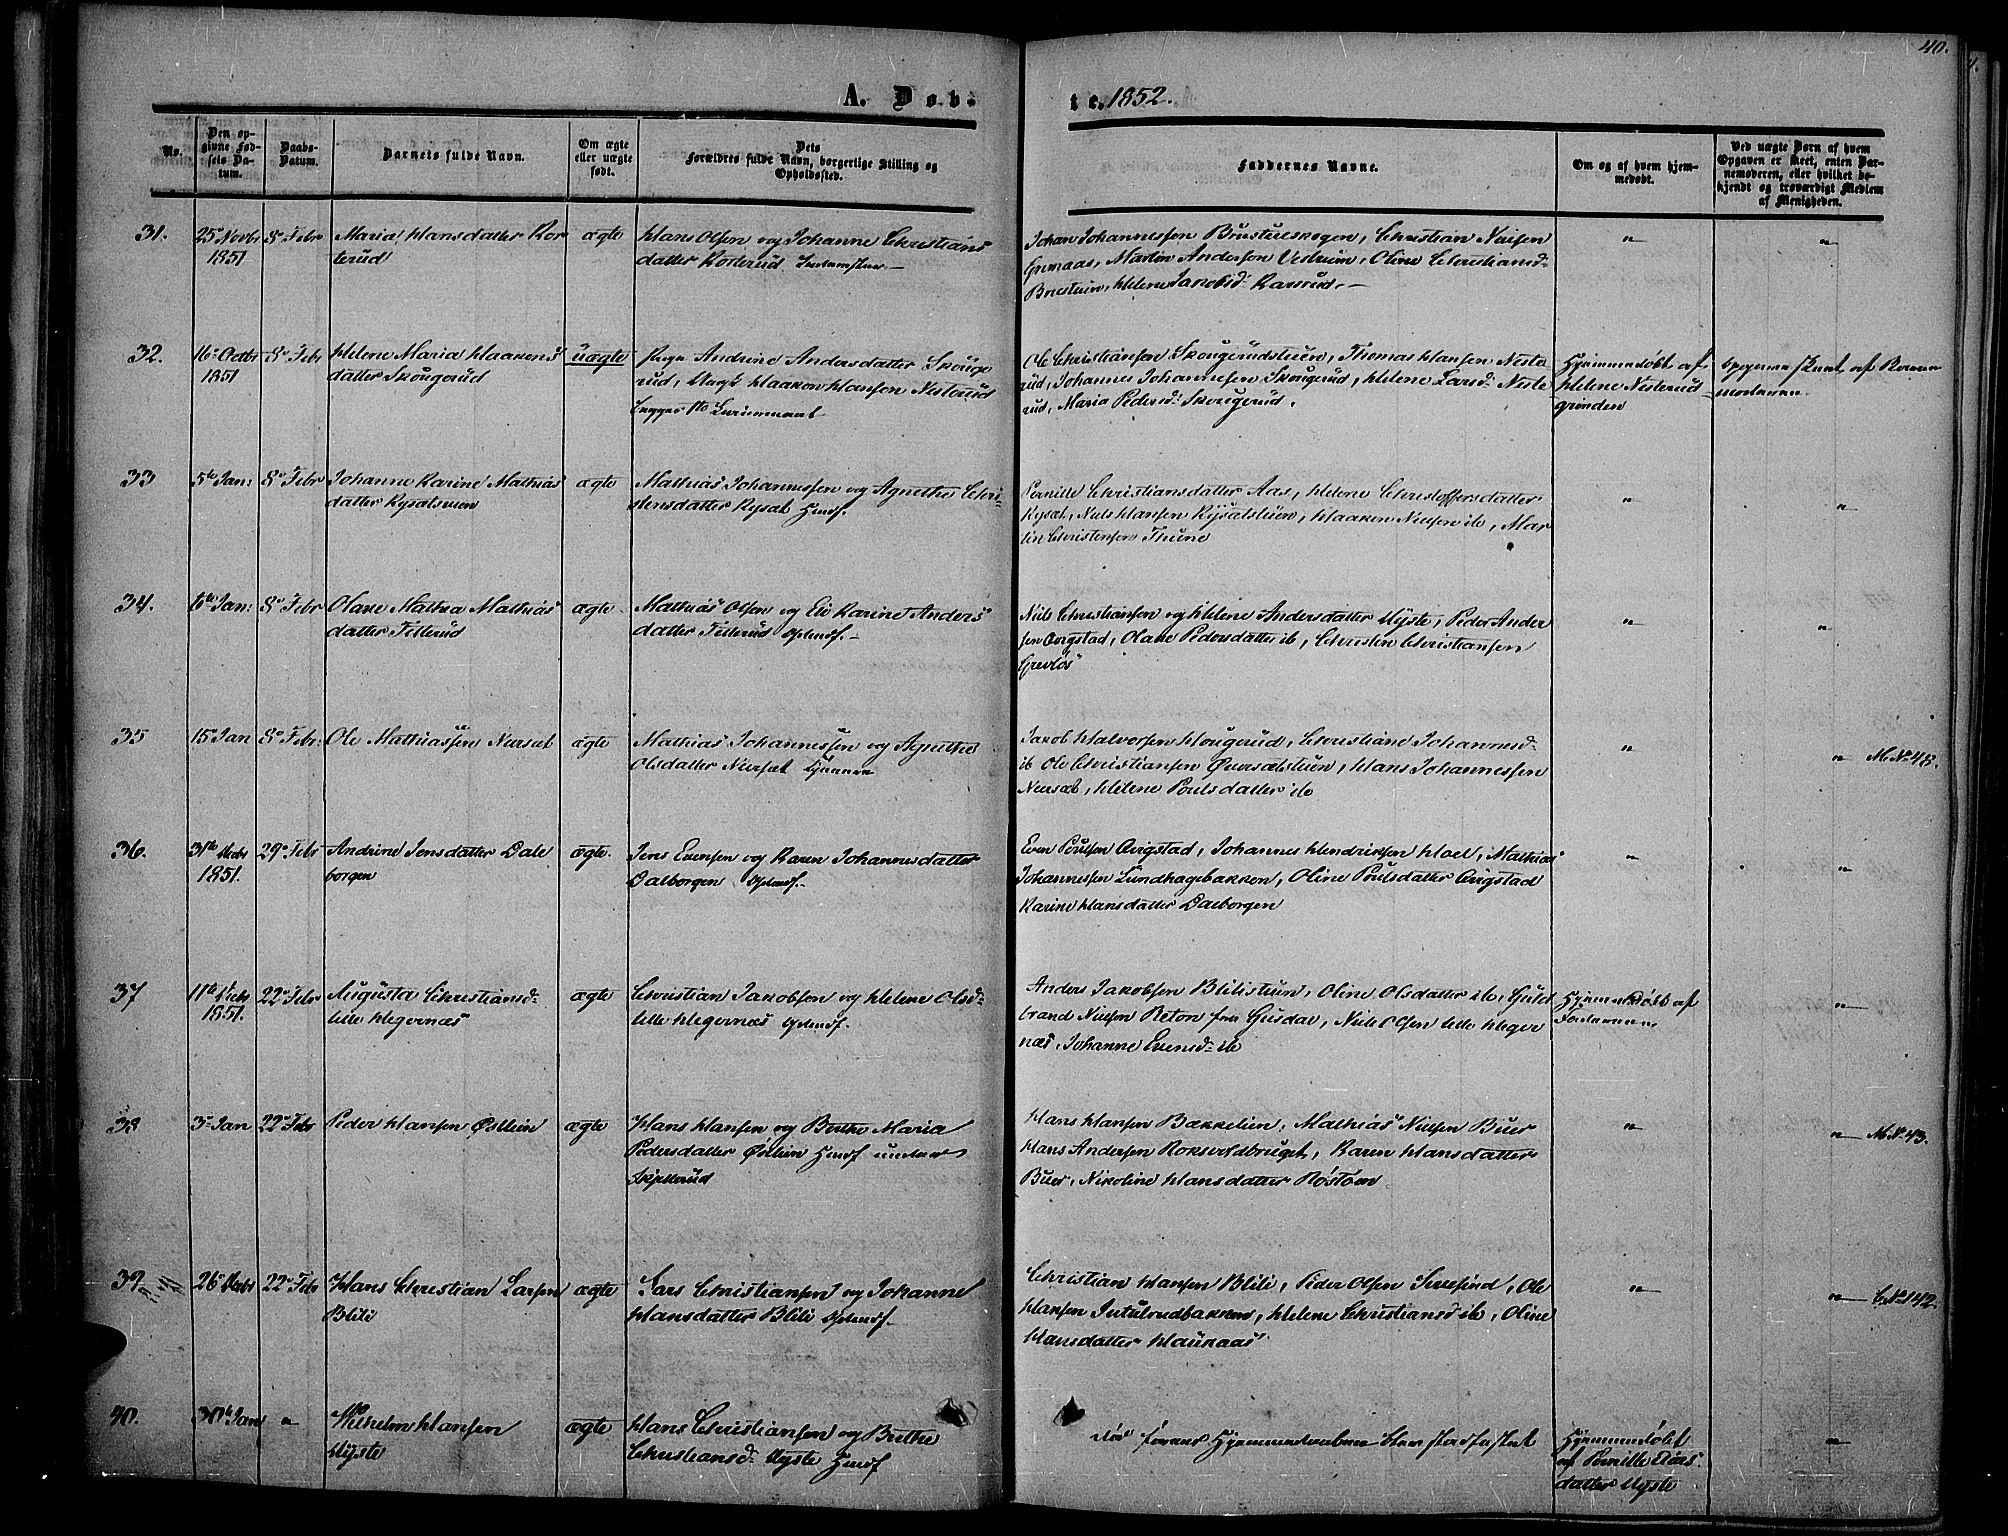 40.
A. Døb-
te. 1852.
No.
Den op-
givne Fød-
sels Da-
tum.
Daabs-
Datum.
Barnets fulde Navn.
Om ægte
eller uægte
født.
Dets
Forældres fulde Navn, borgerlige Stilling og
Opholdssted.
Faddernes Navne.
Om og af hvem hjem-
medøbt.
Ved uægte Børn af hvem
Opgaven er skeet, enten Bar-
nemoderen, eller hvilket be-
kjendt og troværdigt Medlem
af Menigheden.
31. 25 Novbr 8 Febr Maria Hansdatter Kor ægte Hans Olsen og Johanne Christians
1851 terud datter Korterud
Johan Johannessen Brustueskogen, Christian Nielsen
Grimaas, Martin Andersen Vestrum, Oline Christiansd:
Brustuen, Helene Jakobsd: Karsrud.
32. 16 Octbr 8 Febr Helene Maria Haakens uægte Pige Andrine Andersdatter Skouge
1851 datter Skougerud rud, Ungk Haaken Hansen Nesterud
Ole Christiansen Skougerudstuen, Thomas Hansen Neste
rud, Johannes Johannessen Skougerud, Helene Larsd: Neste
rud, Maria Pedersd: Skougerud.
Hjemmedøbt af
Helene Nesterud
grinden
Opgaven skeet af Barne
moderen.
33 5te Jan: 8 Febr Johanne Karine Mathias ægte Mathias Johannessen og Agnethe Chri
datter Rysætstuen stensdatter Rysæt Huusf.
Pernille Christiansdatter Aas, Helene Christoffersdatter
Rysæt, Niels Hansen Rysætstuen, Haaken Nielsen ib, Mar
tin Christensen Thune
34. 6te Jan: 8 Febr Olave Mathea Mathias ægte Mathias Olsen og Eli Karine Anders
datter Fetterud datter Fetterud
Niels Christiansen og Helene Andersdatter Myste, Peder Ander
sen Avgstad, Olave Pedersdatter ib, Christen Christiansen
Grevløs
35 15 Jan 8 Febr: Ole Mathiassen Nærsæt ægte Mathias Johannessen og Agnethe
Olsdatter Nærsæt
Jakob Halvorsen Hougerud, Christiane Johannesd:
ib Ole Christiansen Øversætstuen, Hans Johannessen
Nærsæt, Helene Poulsdatter ib
M. No 48.
36. 31te Decbr 29 Febr Andrine Jensdatter Dale ægte. Jens Evensen og Karen Johannesdatter
1851. borgen Dalborgen
Even Poulsen Avgstad, Johannes Hendriksen Hoel, Mathias
Johannessen Lundhagebakken, Oline Poulsdatter Avgstad
Karine Hansdatter Dalborgen
37 11te Decbr 22 Febr Augusta Christiansd: ægte Christian Jakobsen og Helene Olsd:
1851. lille Hegernæs lille Hegernæs
Anders Jakobsen Blilistuen, Oline Olsdatter ib, Guld
brand Nielsen Reton fra Gusdal, Niels Olsen lille Heger
næs, Johanne Evensd: ib
Hjemmedøbt af
38 3 Jan 22 Febr Peder Hansen Østlien ægte Hans Hansen og Berthe Maria
Pedersdatter Østlien Huusf under
Skjelterud
Hans Hansen Bækkelien, Mathias Nielsen Buer
Hans Andersen Roksvoldbruget, Karen Hansdatter
Buer, Nikoline Hansdatter Røstøen
M. No 43.
39. 26 Decbr 22 Febr Hans Christian Larsen ægte Lars Christiansen og Johanne
Blili Hansdatter Blili
Christian Hansen Blili, Peder Olsen, Ole
Hansen Intulrudbakken, Helene Christiansd ib, Oline
Hansdatter Haukaas
C. No 142.
40. 30te Jan " Wilhelm Hansen ægte Hans Christiansen og Berthe
Myste Christiansd: Myste Huusf
død førend Hjemmedaaben blev stadfæstet
Hjemmedøbt
af Pernille Lars
datter Myste